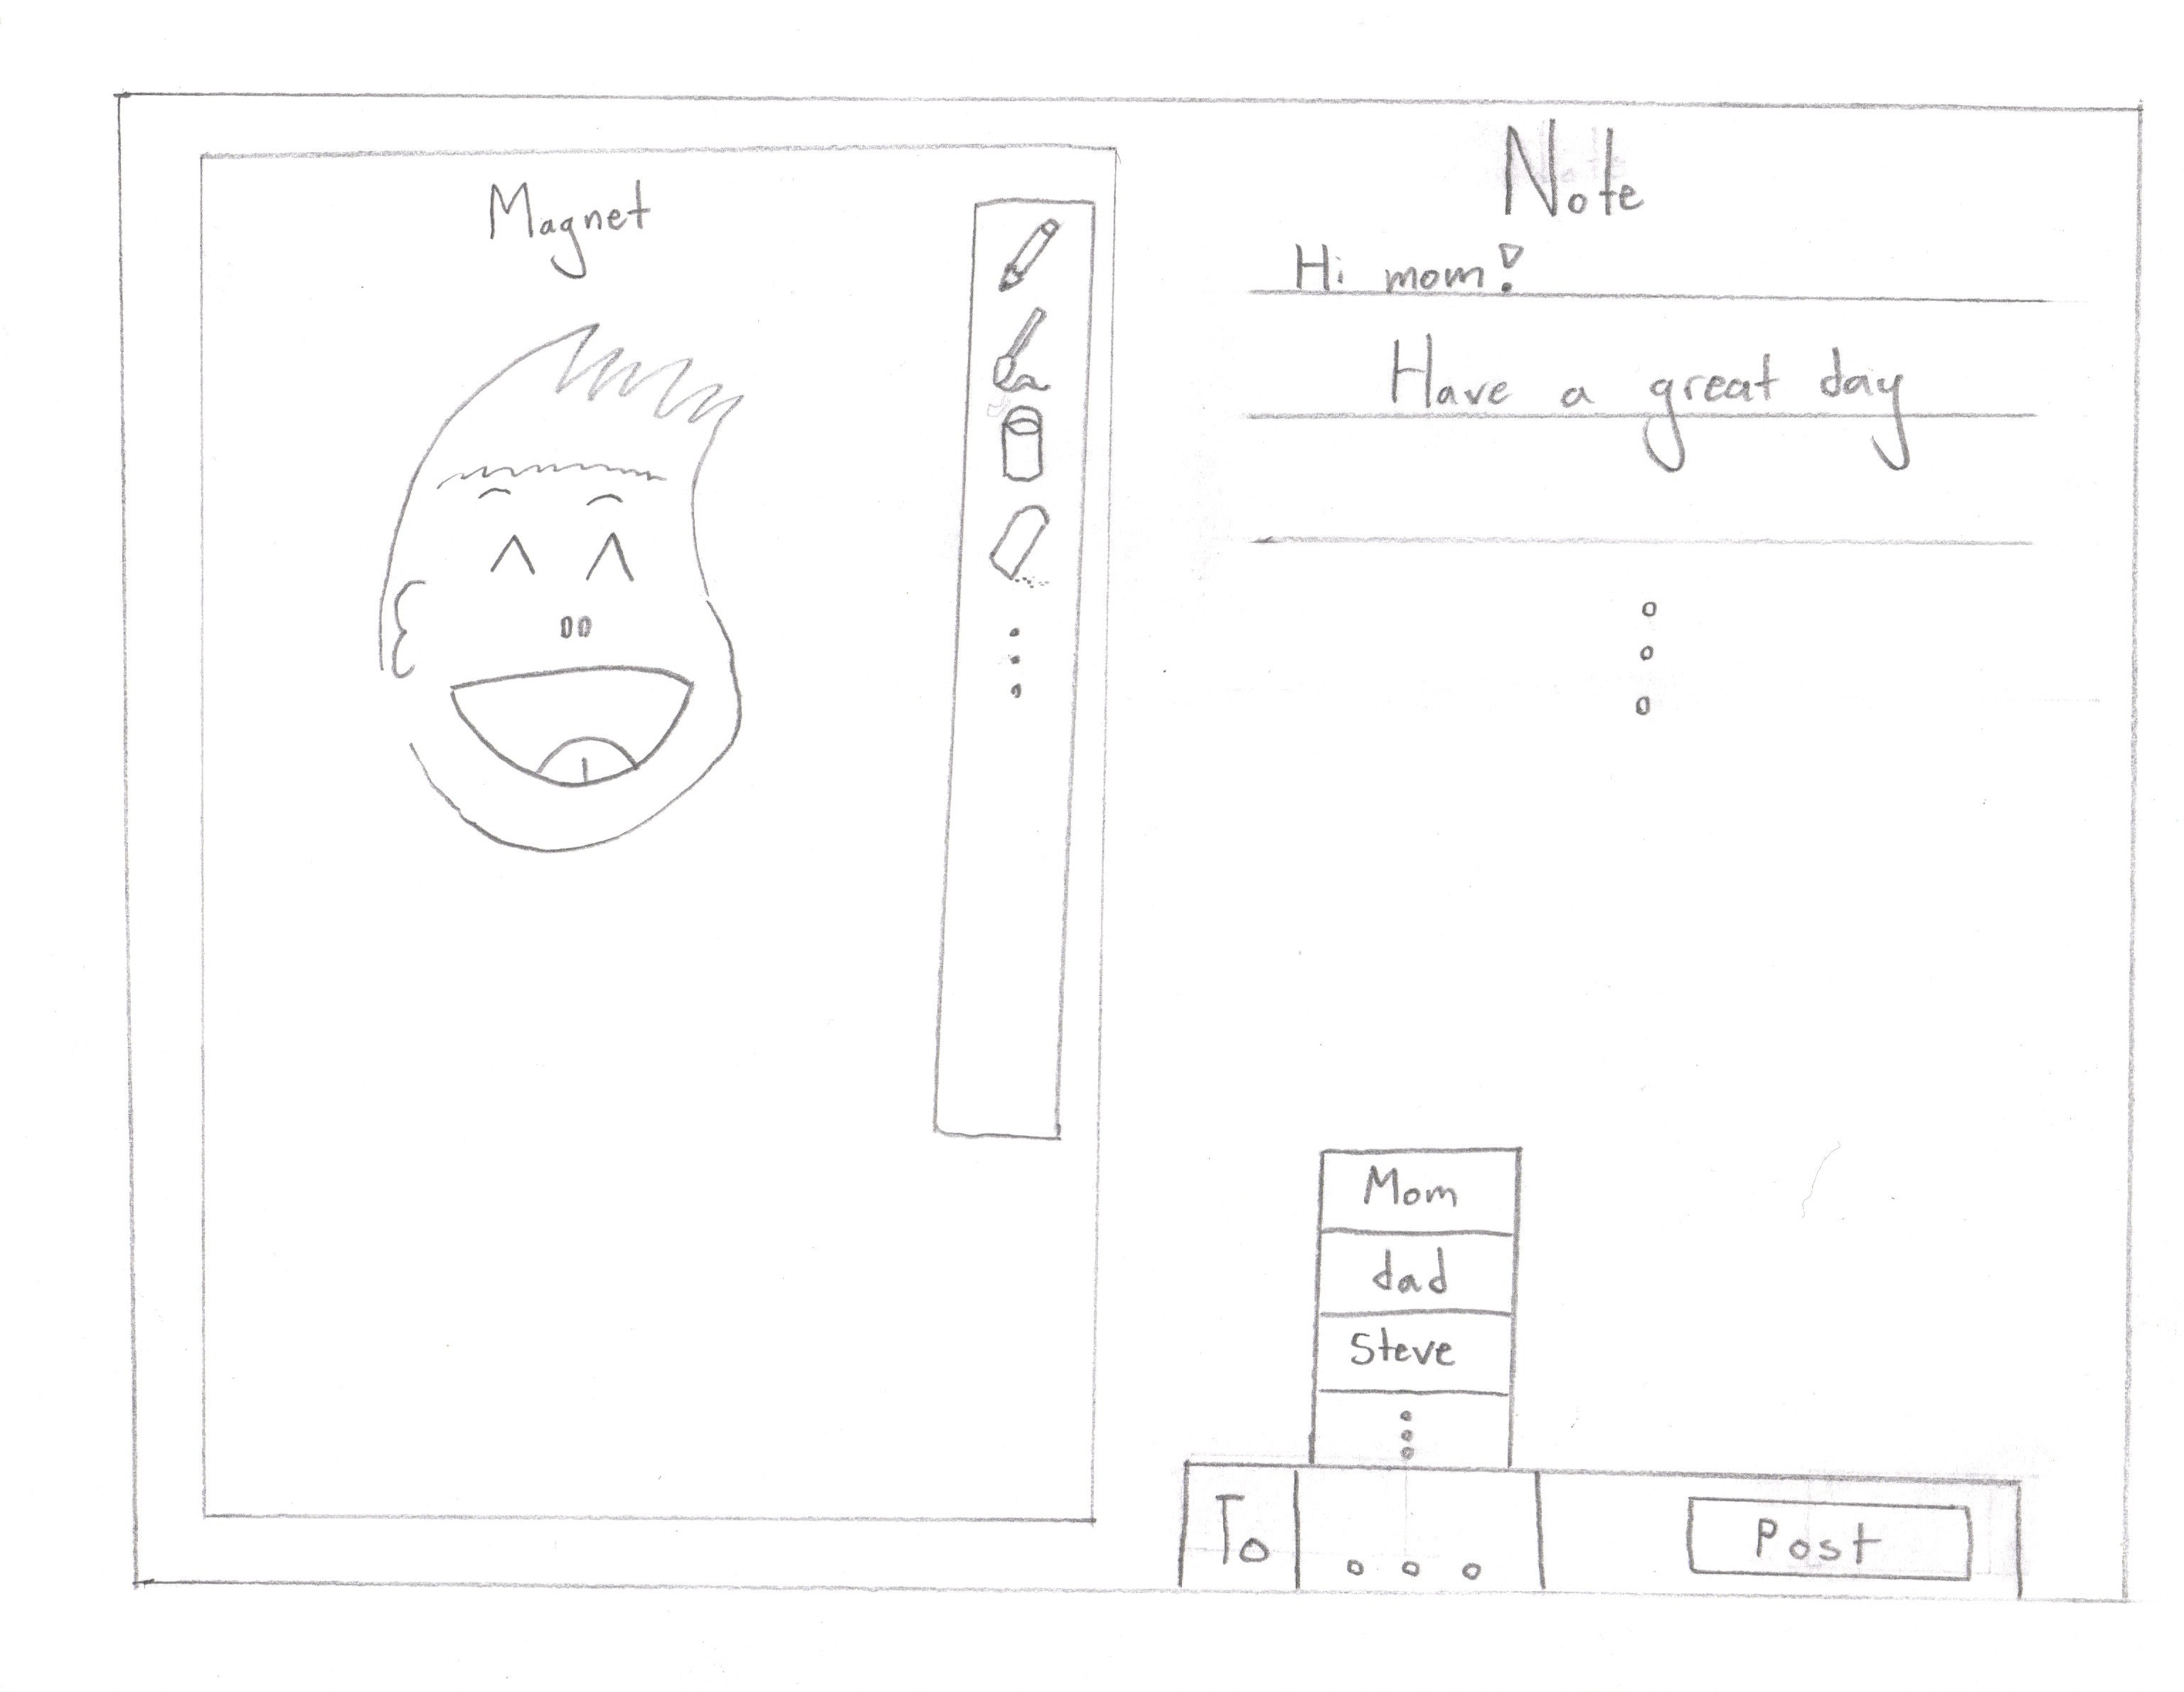 Magnet
Note
Hi mom!
Have a great day
Mom
dad
Steve
To
Post